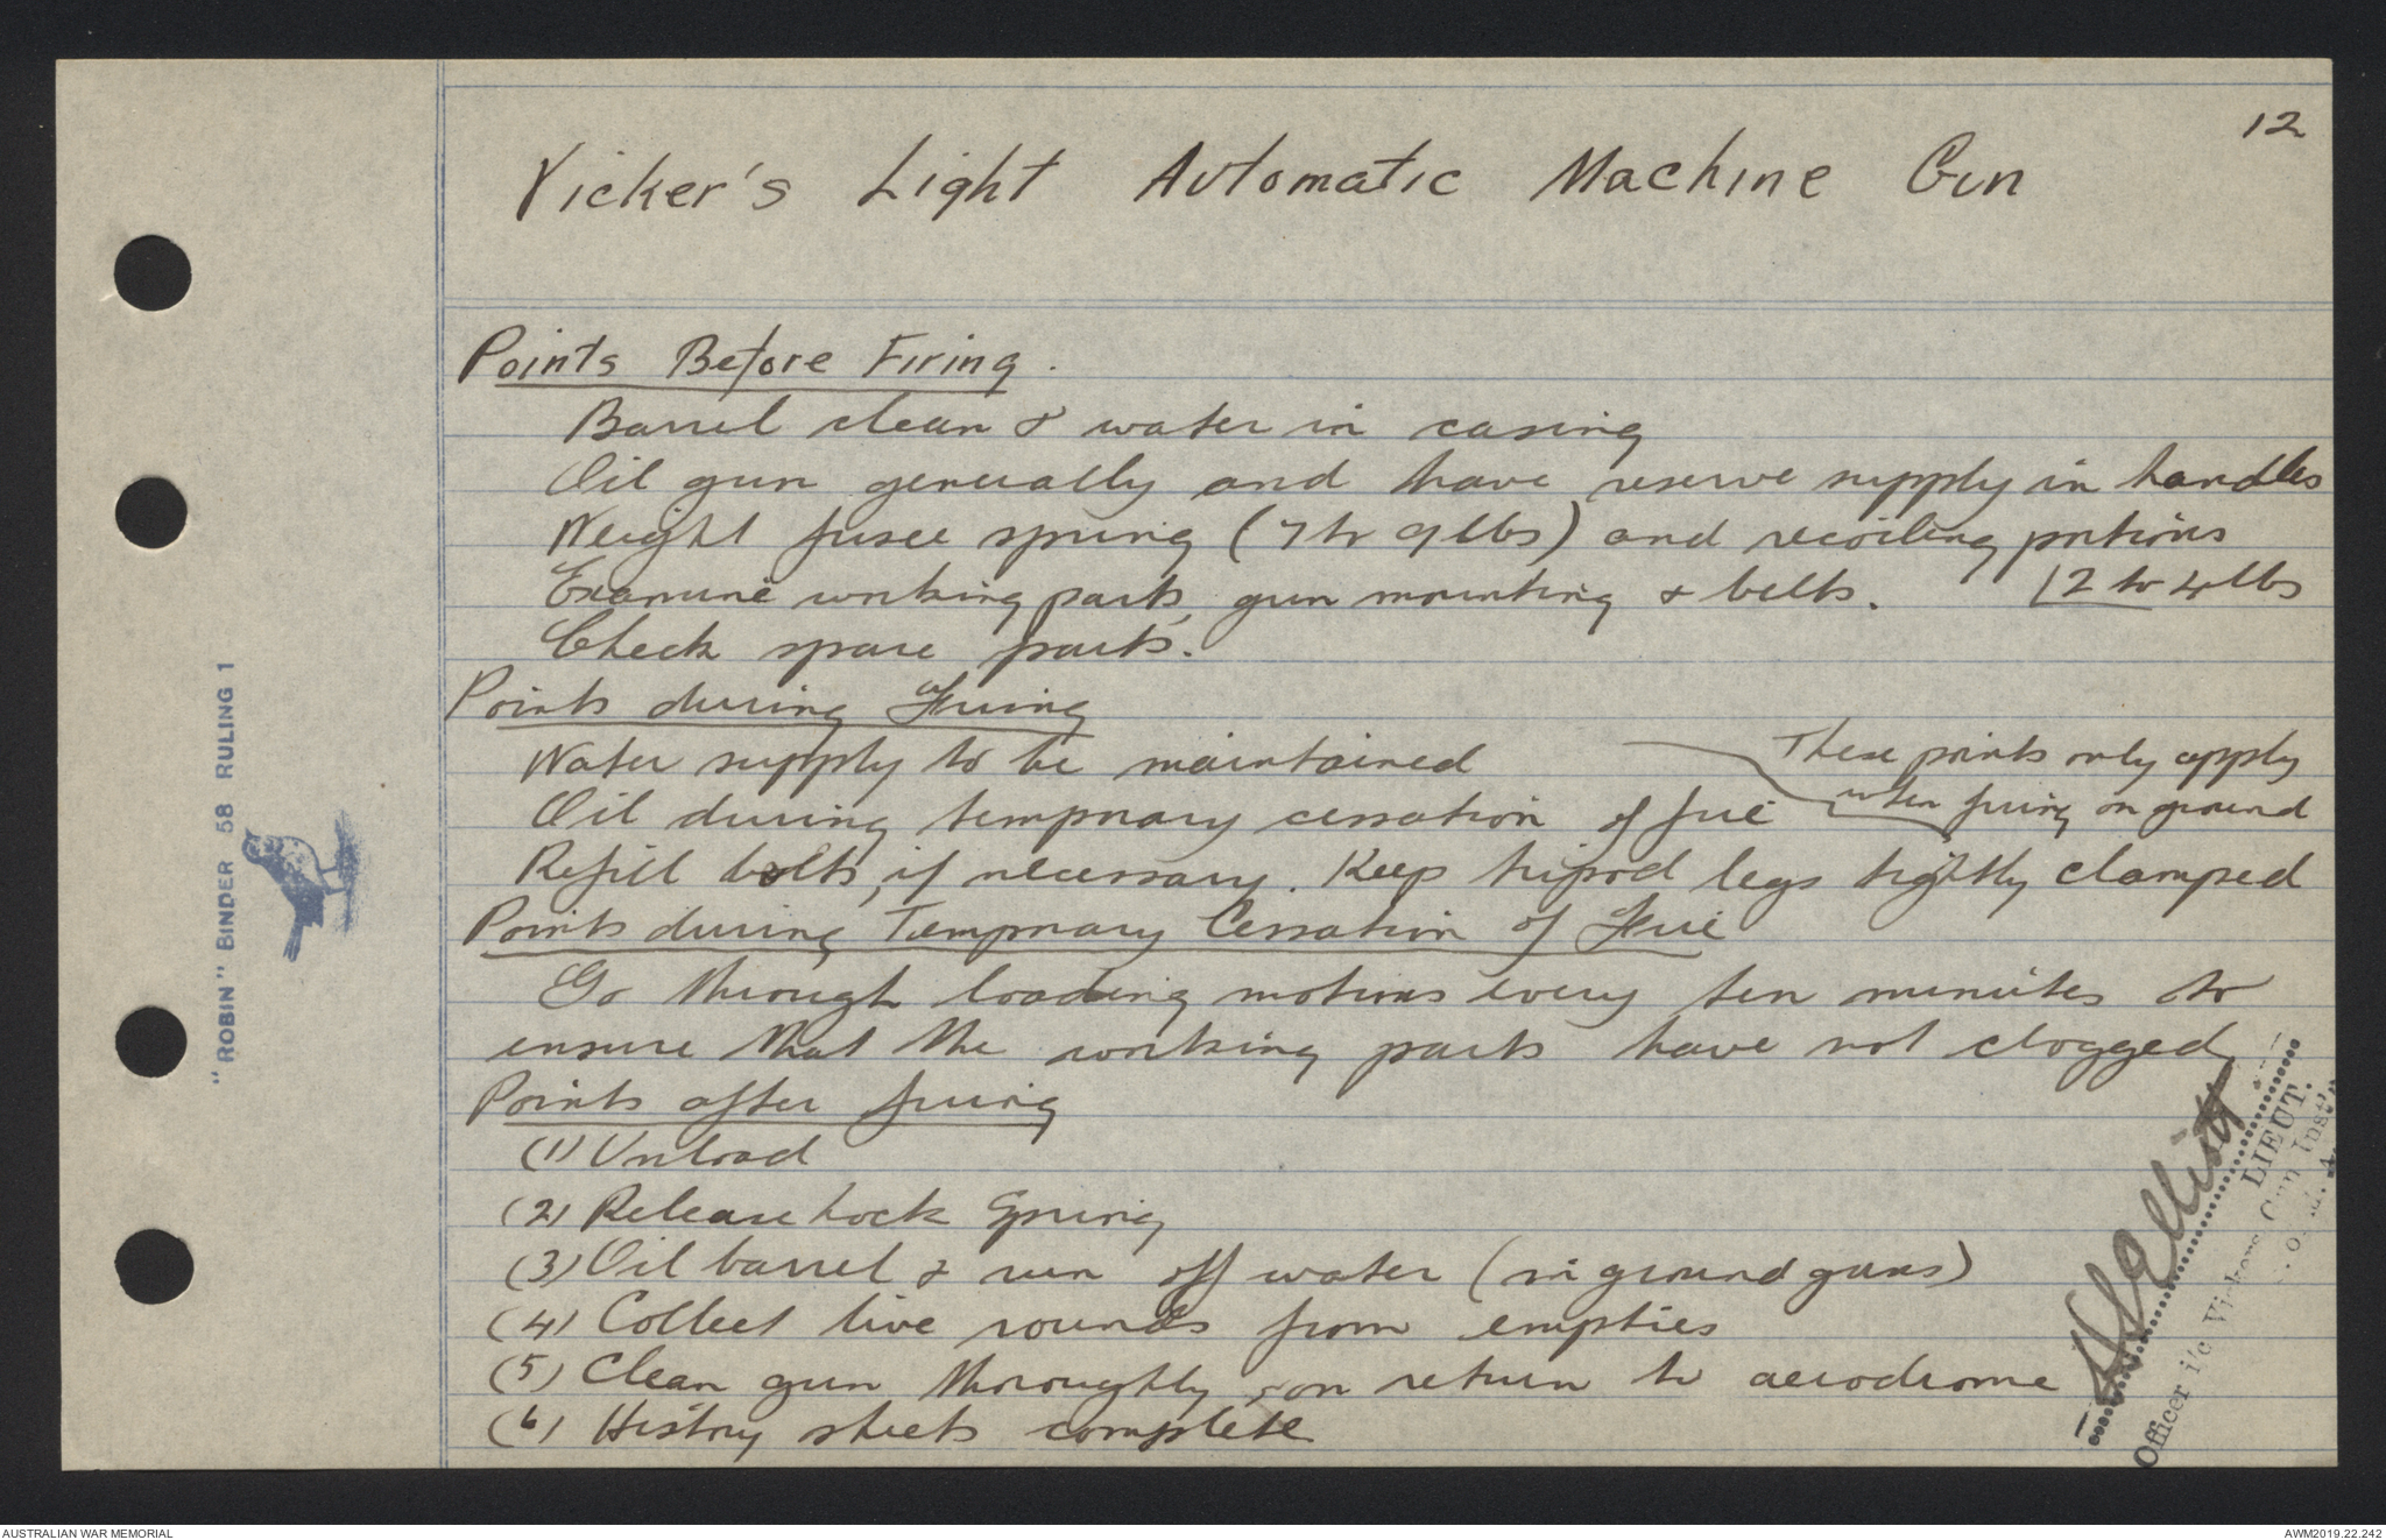 12
Vicker's Light Automatic Machine Gun
Points Before Firing.
Barrel clean & water in casing
Oil gun generally and have reserve supply in handles
Weight fusee spring (7 to 9 lbs) and recoiling portions
Examine working parts, gun mounting & belts. (2 to 4 lbs
Check spare parts.
Points during Firing
Water supply to be maintained
These points only apply
when firing on ground
Oil during temporary cessation of fire
Refill belts, if necessary. Keep tripod legs tightly clamped
Points during Temporary Cessation of Fire
Go through loading motions every ten minutes to
ensure that the working parts have not clogged
Points after firing
(1) Unload
(2) Release Lock Spring
(3) Oil barrel & run off water (in ground guns)
(4) Collect live rounds from empties
(5) Clean gun thoroughly, on return to aerodrome
(6) History sheets complete
"ROBIN" BINDER 58 RULING 1
LIEUT.
Officer i/c Vickers Gun Inst
AUSTRALIAN WAR MEMORIAL
AWM2019.22.242